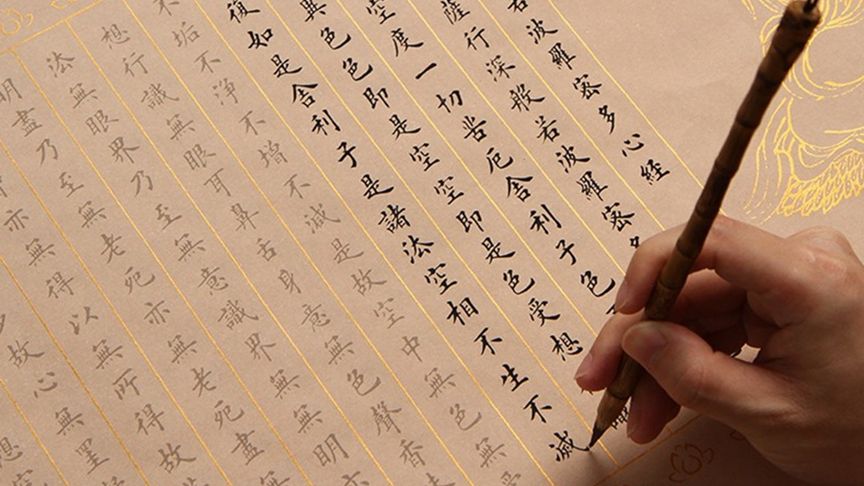 若波羅密多心經
薩行深般若波羅密多
空度一切苦厄舍利子色
異色色即是空空即是色受想
復如是舍利子是諸法空相不生不滅
不垢不淨不增不減是故空中無色無受
想行識無眼耳鼻舌身意無色聲香
法無眼界乃至無意識界無無明
明盡乃至無老死亦無老死盡
亦無得以無所得故
故心無罣
想